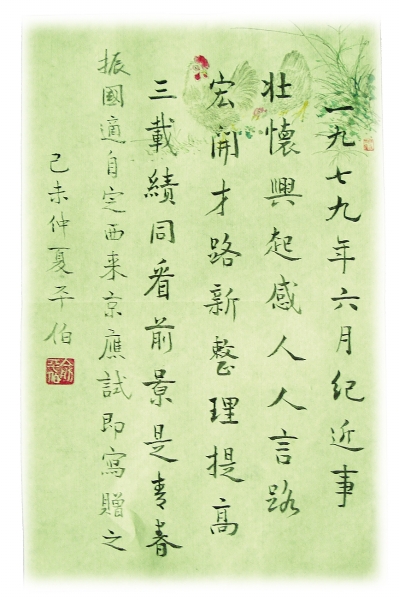 一九七九年六月纪近事
壮懷興起感人人言路
宏開才路新整理提高
三載績同看前景是青春
振國適自定西来京應試即寫贈之
己未仲夏平伯